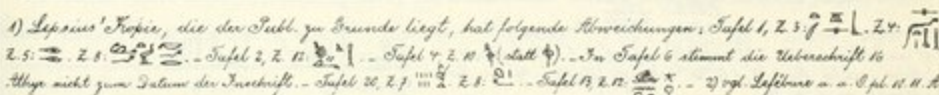 1) Lepsius' Kopie, die der Publ. zu Grunde liegt, hat folgende Abweichungen; Tafel 1, Z. 3: Z. 4:
Z. 5: Z. 8: – Tafel 2, Z. 12: – Tafel 4. Z. 10 (statt ). – In Tafel 6 stimmt die Ueberschrift 16
Athyr nicht zum Datum der Inschrift. – Tafel 20, Z. 7 Z. 8: – Tafel 13, Z. 12: – 2) vgl. Lefébure a. a. O. pl. 10. 11. A